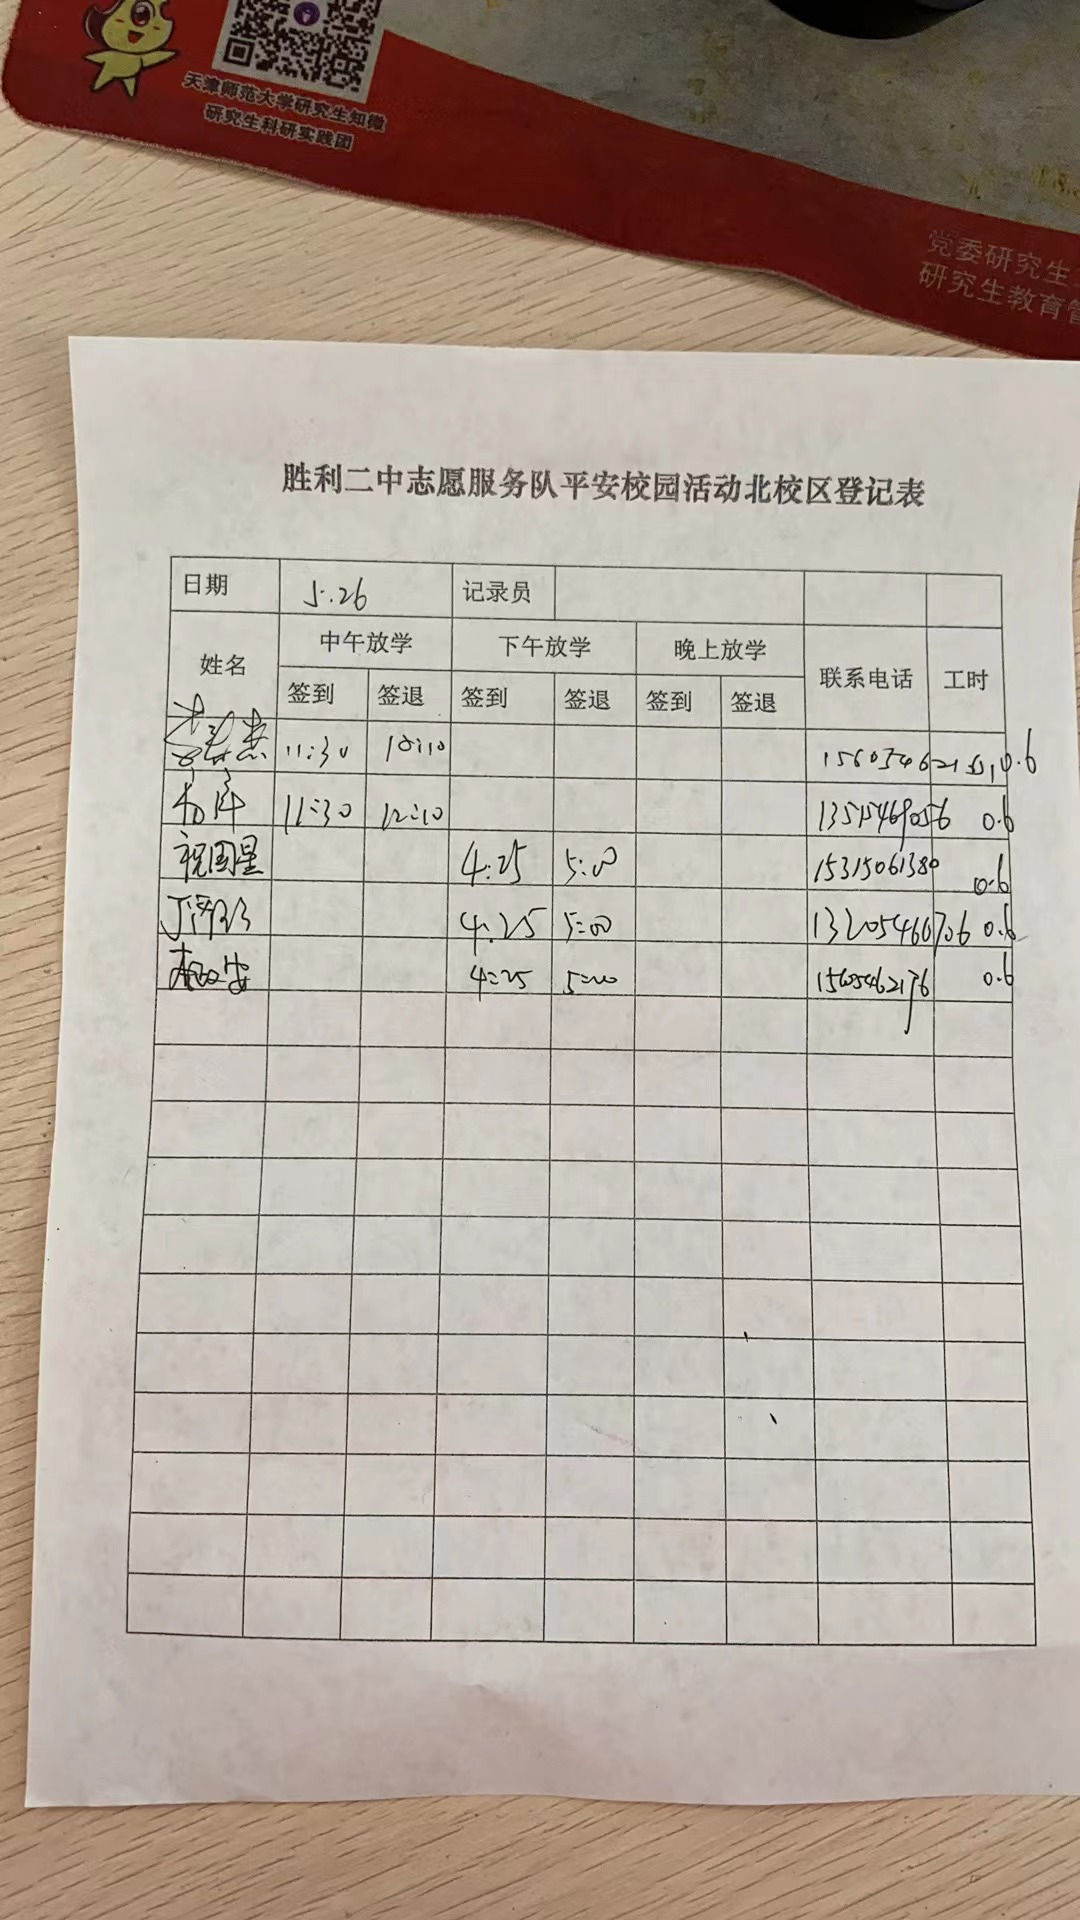 天津师范大学研究生知微
研究生科研实践团
党委研究生
研究生教育管
胜利二中志愿服务队平安校园活动北校区登记表
日期 5.26 记录员
姓名 中午放学 下午放学 晚上放学 联系电话 工时
签到 签退 签到 签退 签到 签退
11:30 0.6
11:30 12:10 0.6
祝国星 4:25 5:00 15315061380 0.6
4:25 5:00 13205466706 0.6
4:25 5:00 0.6